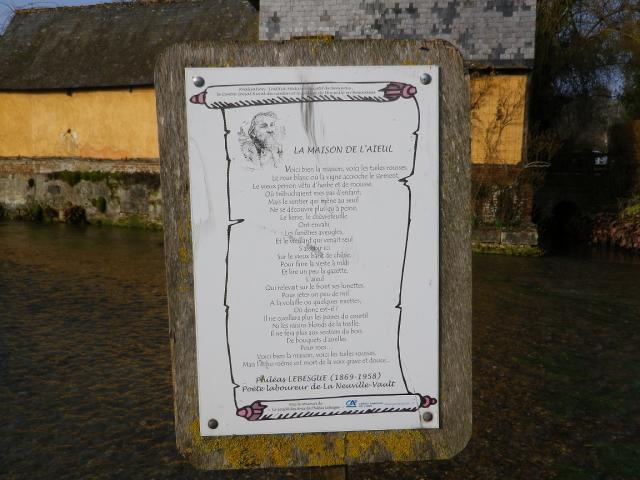 LA MAISON DE L'AÏEUL
Voici bien la maison, voici les tuiles rousses,
Le mur blanc où la vigne accroche le sarment,
Le vieux perron vêtu d'herbe et de mousse,
Où trébuchaient mes pas d'enfant;
Mais le sentier qui mène au seuil
Ne se découvre plus qu'à peine,
Le lierre, le chèvrefeuille
Ont envahi
Les fenêtres aveugles,
Et le vieillard qui venait seul
S'asseoir ici
Sur le vieux banc de chêne,
Pour faire la sieste à midi
Et lire un peu la gazette,
L'aïeul
Qui relevait sur le front ses lunettes,
Pour jeter un peu de mil
A la volaille ou quelques miettes,
Où donc est-il ?
Il ne cueillera plus les poires du courtil
Ni les raisins blonds de la treille,
Il ne fera plus aux sentiers du bois
De bouquets d'airelles
Pour moi...
Voici bien la maison, voici les tuiles rousses,
Mais l'aïeul est mort de la voix grave et douce...
Philéas LEBESGUE (1869-1958)
Poète laboureur de La Neuville-Vault